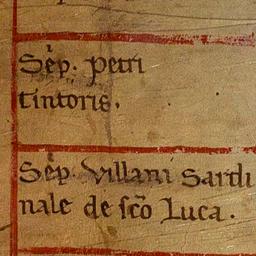 Sep̄. petri
tintoris.
Sep̄. villani Sardi
nale de sc̄o Luca.